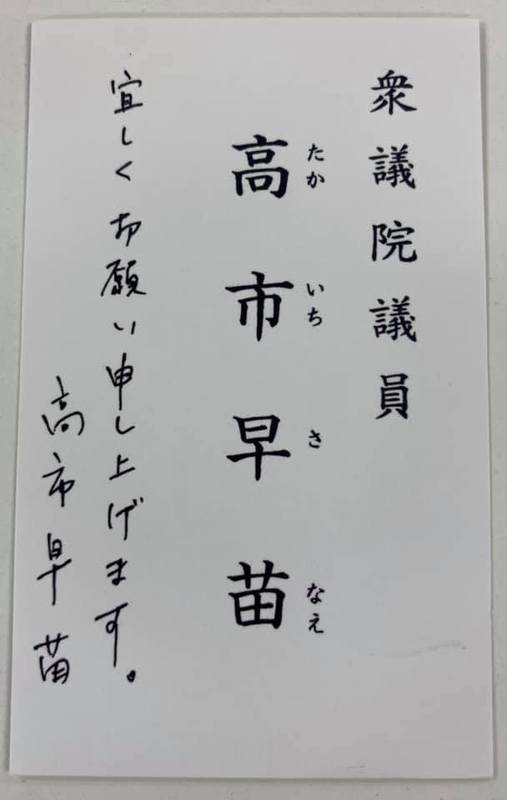 衆議院議員
たか いち さ なえ
高市早苗
宜しくお願い申し上げます。
高市早苗